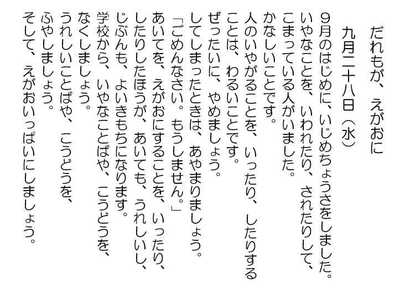 だれもが、えがおに
九月二十八日（水）
９月のはじめに、いじめちょうさをしました。
いやなことを、いわれたり、されたりして、
こまっている人がいました。
かなしいことです。
人のいやがることを、いったり、したりする
ことは、わるいことです。
ぜったいに、やめましょう。
してしまったときは、あやまりましょう。
「ごめんなさい。もうしません。」
あいてを、えがおにすることを、いったり、
したりしたほうが、あいても、うれしいし、
じぶんも、よいきもちになります。
学校から、いやなことばや、こうどうを、
なくしましょう。
うれしいことばや、こうどうを、
ふやしましょう。
そして、えがおいっぱいにしましょう。